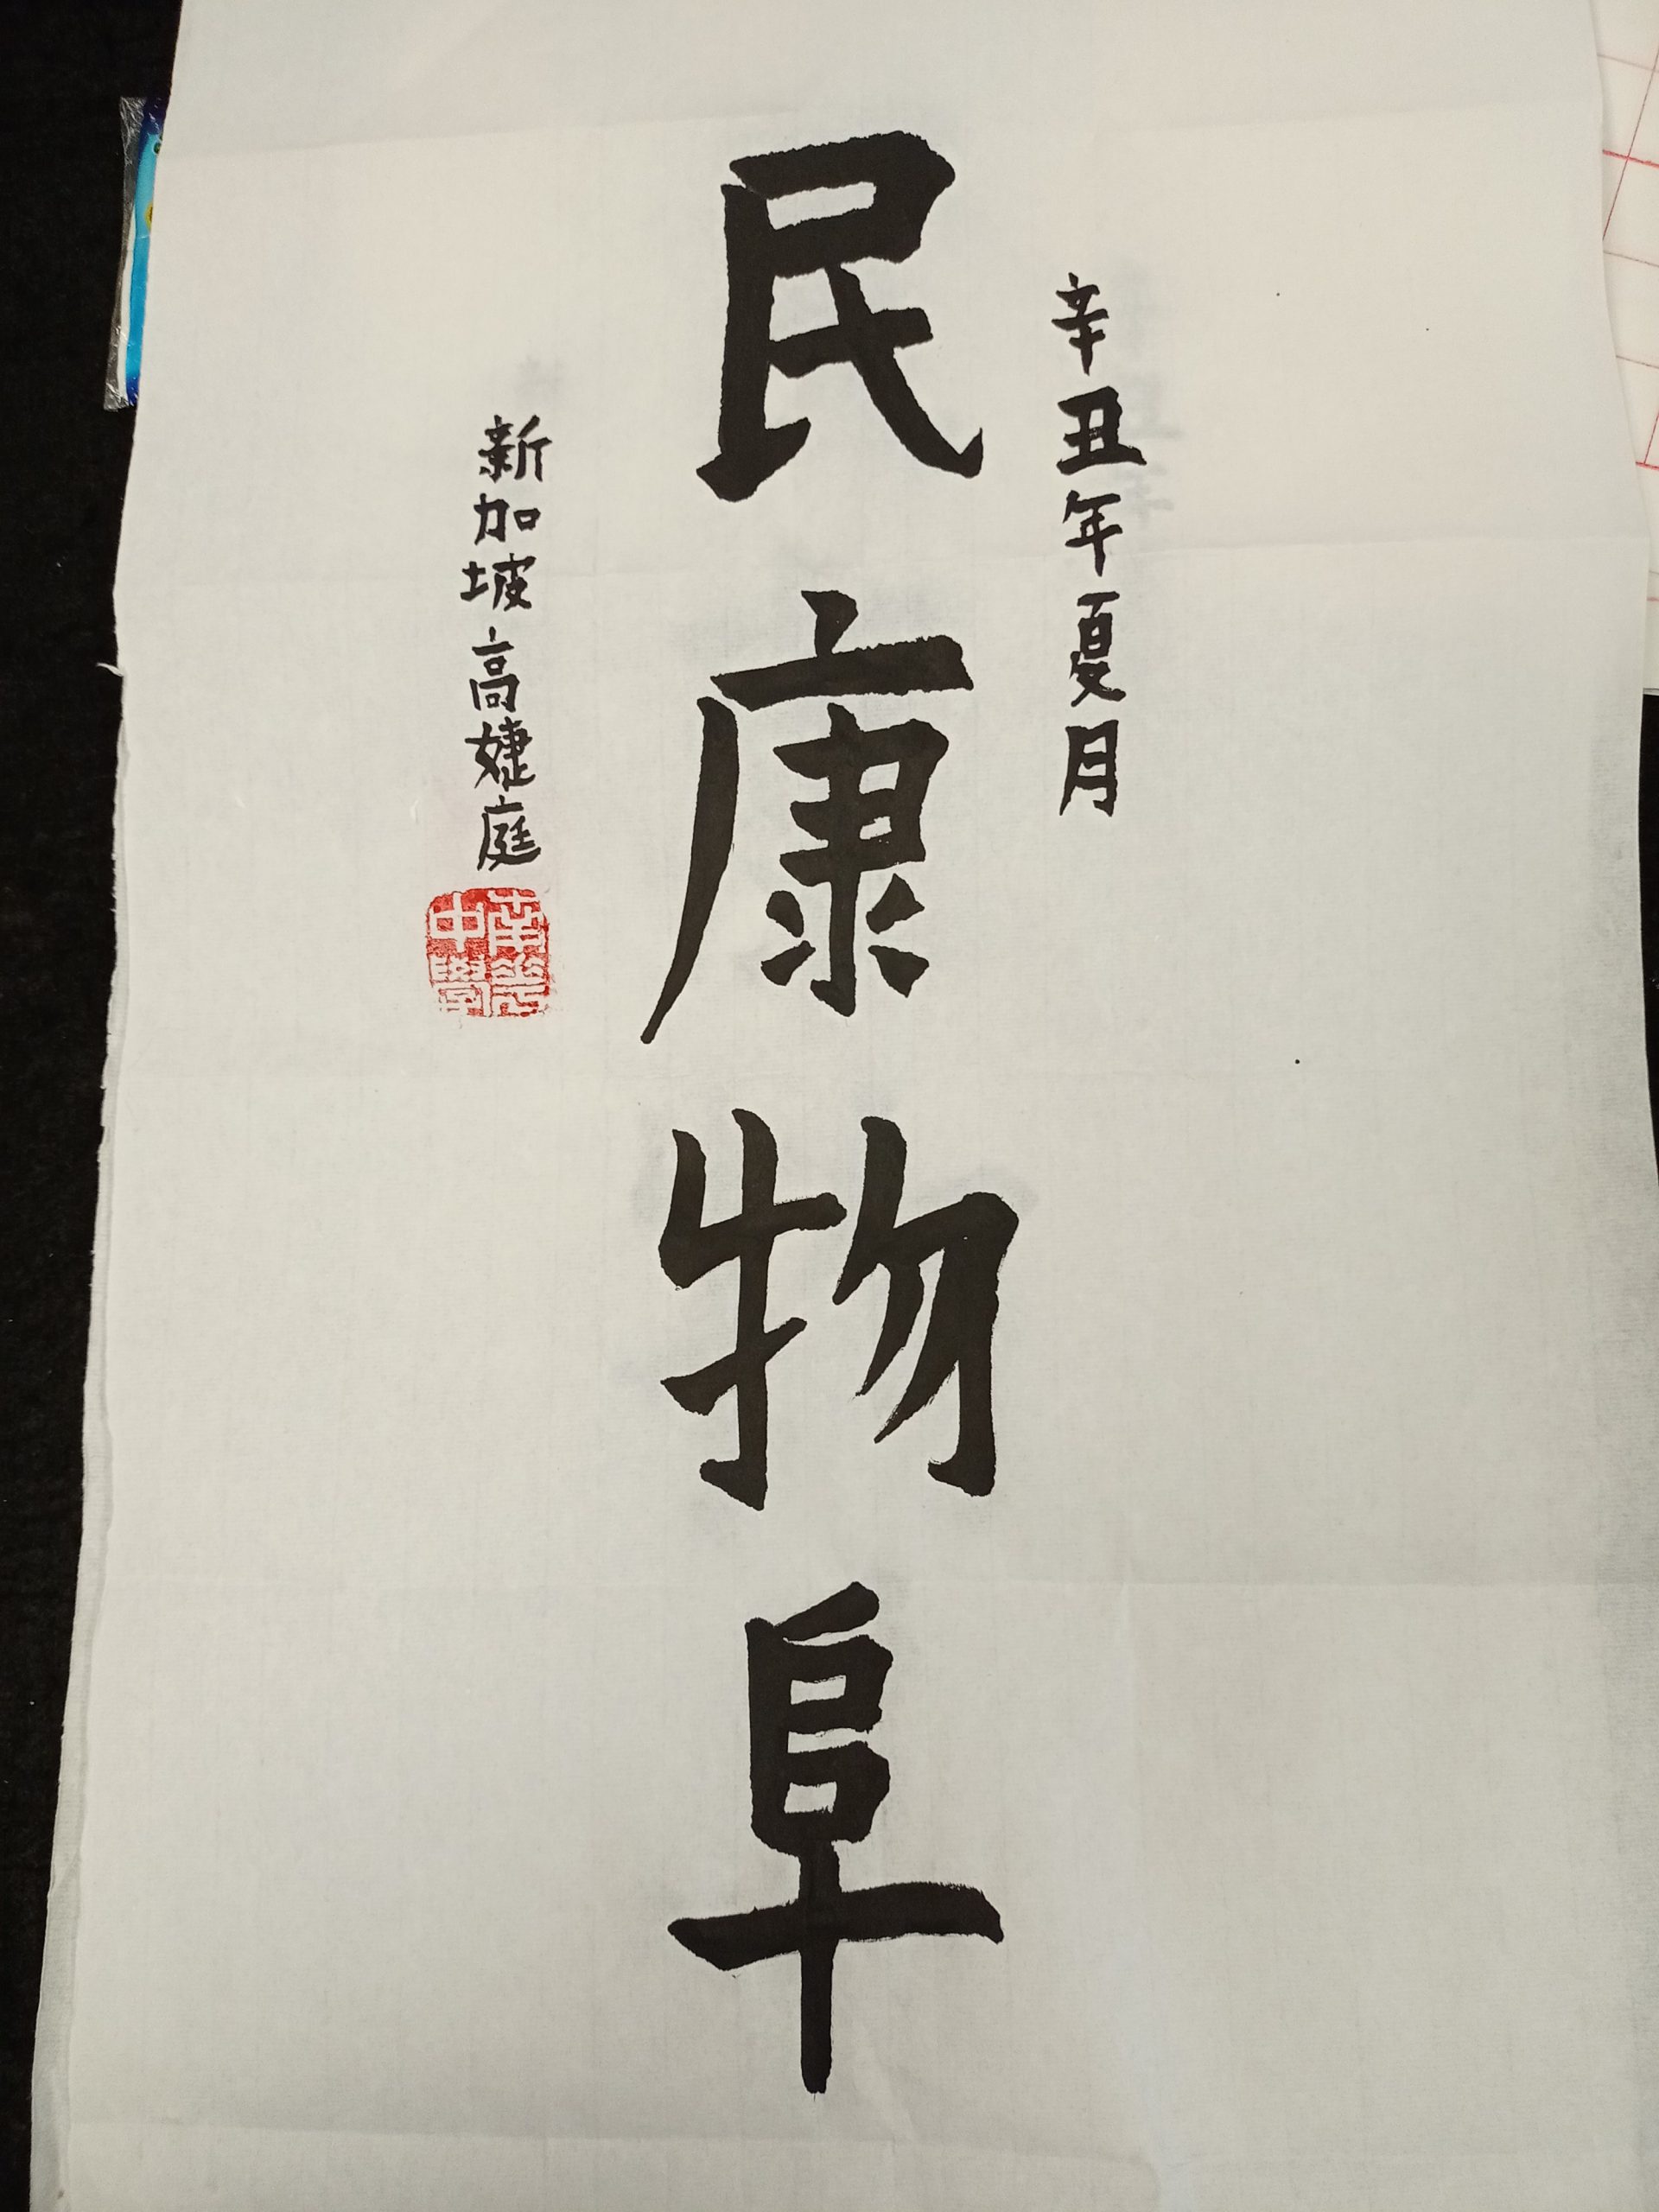 辛丑年夏月
民康物阜
新加坡高婕庭
南華中學